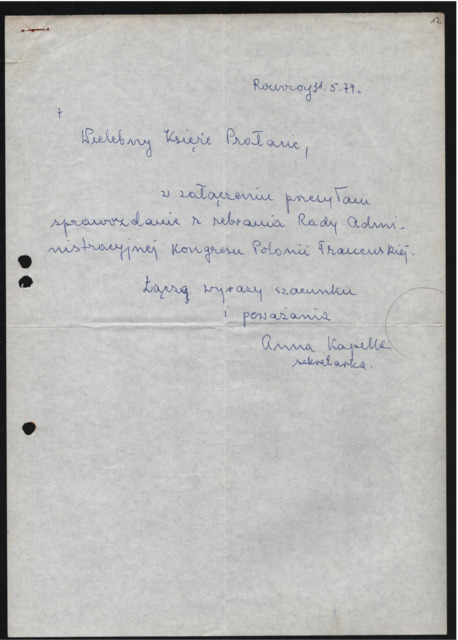 12
Rouvroy 31. 5. 79.
+
Wielebny Księże Prałacie,
w załączeniu przesyłam
sprawozdanie z zebrania Rady Admi-
nistracyjnej Kongresu Polonii Francuskiej.
Łączą wyrazy szacunku
i poważania
Anna Kapella
sekretarka.